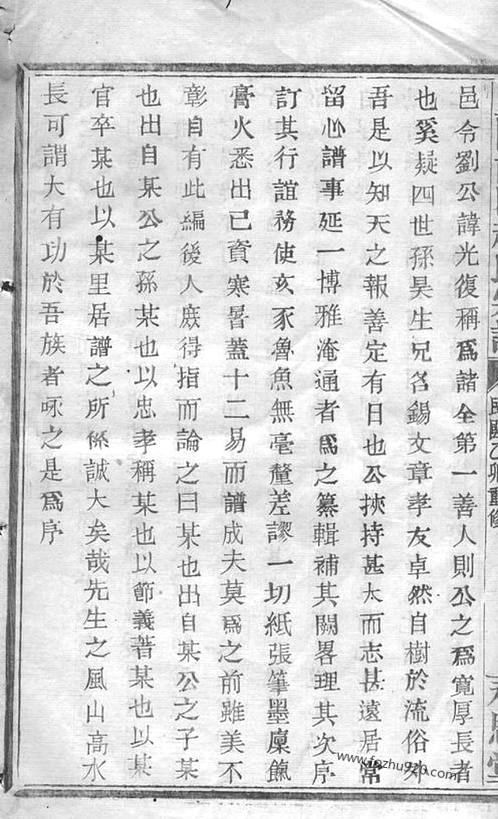 邑令劉公諱光復稱爲諸全第一善人則公之爲寬厚長者
也奚疑四世孫昊生兄名錫文章孝友卓然自樹於流俗外
吾是以知天之報善定有日也公挾持甚大而志甚遠居常
留心譜事延一博雅淹通者爲之纂輯補其闕畧理其次序
訂其行誼務使亥豕魯魚無毫釐差謬一切紙張筆墨廩餼
膏火悉出己資寒暑蓋十二易而譜成夫莫爲之前雖美不
彰自有此編後人庶得指而論之曰某也出自某公之子某
也出自某公之孫某也以忠孝稱某也以節義著某也以某
官卒某也以某里居譜之所係誠大矣哉先生之風山高水
長可謂大有功於吾族者哌之是爲序
www.fozhu920.com